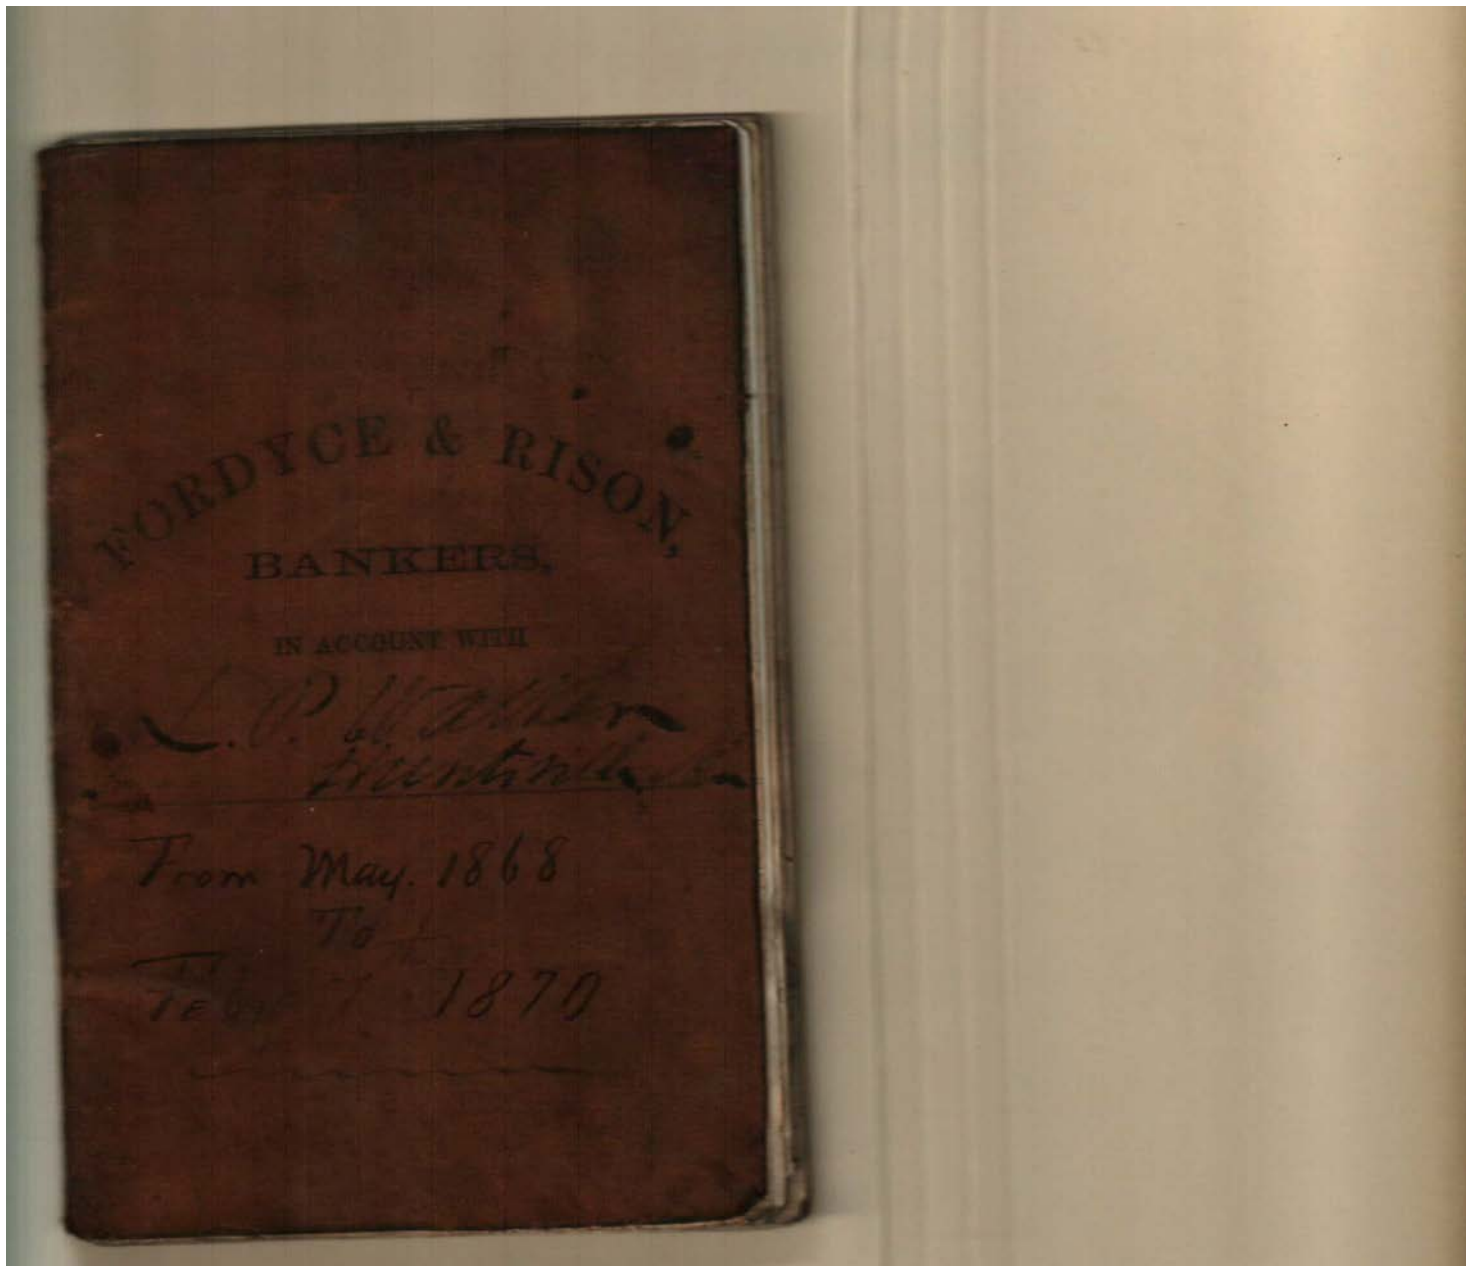 FORDYCE & RISON,
BANKERS,
IN ACCOUNT WITH
L. P. Walker
Huntsville
From May. 1868
To
1870